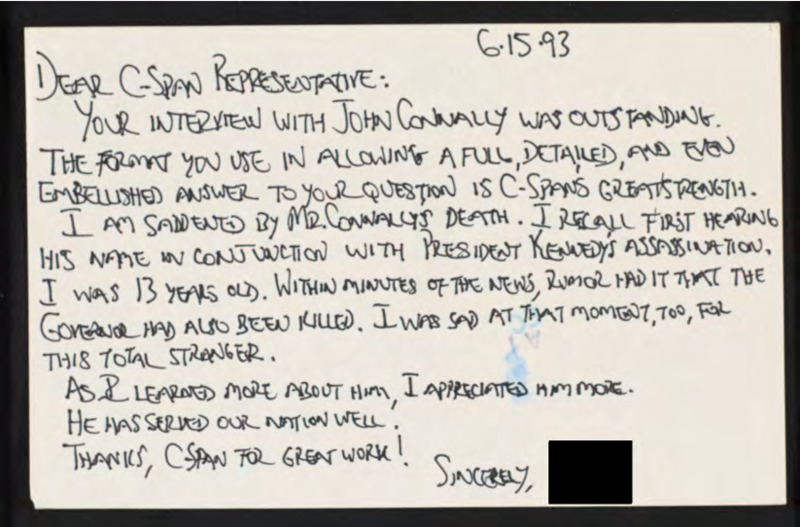 6.15.93
DEAR C-SPAN REPRESENTATIVE:
YOUR INTERVIEW WITH JOHN CONNALLY WAS OUTSTANDING.
THE FORMAT YOU USE IN ALLOWING A FULL, DETAILED, AND EVEN
EMBELLISHED ANSWER TO YOUR QUESTION IS C-SPAN'S GREAT STRENGTH.
I AM SADDENED BY MR. CONNALLY'S DEATH. I RECALL FIRST HEARING
HIS NAME IN CONJUNCTION WITH PRESIDENT KENNEDY'S ASSASSINATION.
I WAS 13 YEARS OLD. WITHIN MINUTES OF THE NEWS, RUMOR HAD IT THAT THE
GOVERNOR HAD ALSO BEEN KILLED. I WAS SAD AT THAT MOMENT, TOO, FOR
THIS TOTAL STRANGER.
AS I LEARNED MORE ABOUT HIM, I APPRECIATED HIM MORE.
HE HAS SERVED OUR NATION WELL.
THANKS, C-SPAN FOR GREAT WORK!
SINCERELY,